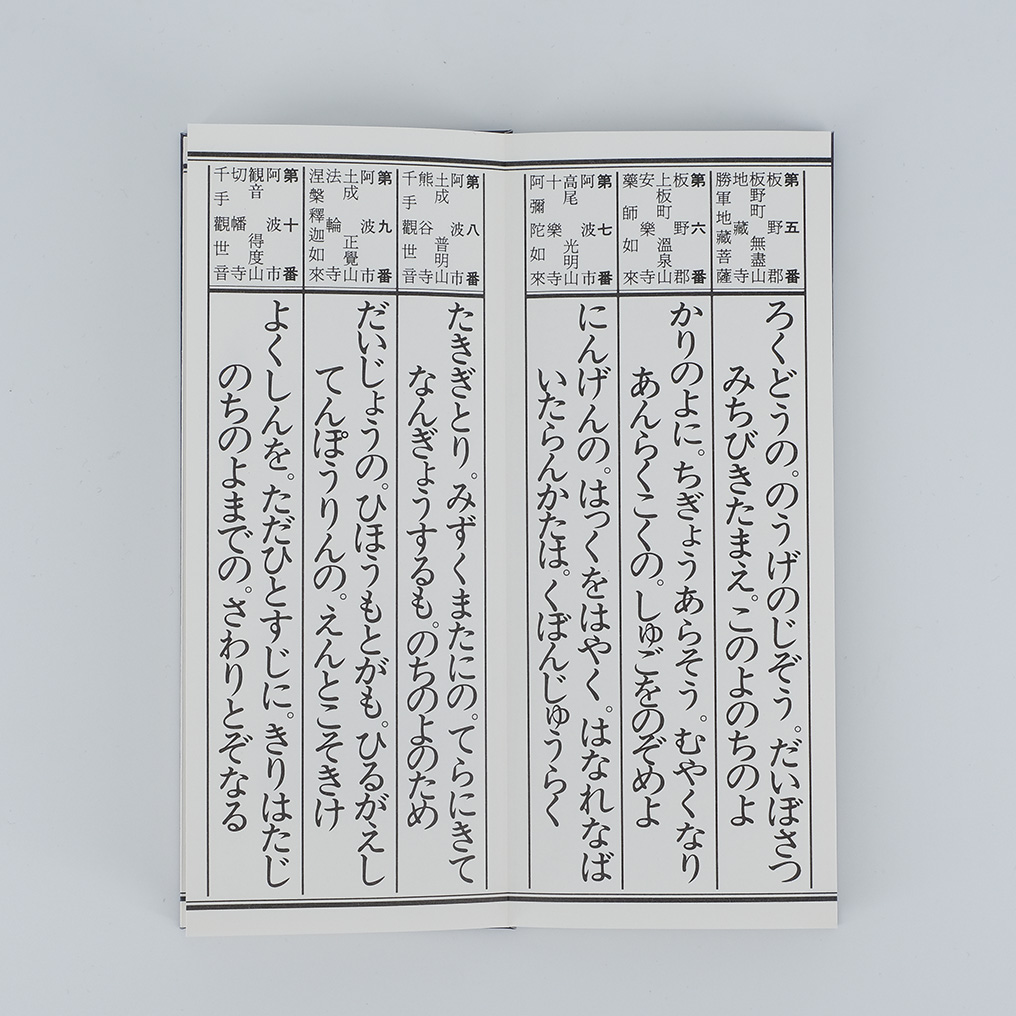 第五番
板野郡
板野町 無盡山
地藏寺
勝軍地藏菩薩
ろくどうの。のうげのじぞう。だいぼさつ
みちびきたまえ。このよのちのよ
第六番
板野郡
上板町 溫泉山
安樂寺
藥師如來
かりのよに。ちぎょうあらそう。むやくなり
あんらくこくの。しゅごをのぞめよ
第七番
阿波市
高尾 光明山
十樂寺
阿彌陀如來
にんげんの。はっくをはやく。はなれなば
いたらんかたは。くぼんじゅうらく
第八番
阿波市
土成 普明山
熊谷寺
千手觀世音
たきぎとり。みずくまたにの。てらにきて
なんぎょうするも。のちのよのため
第九番
阿波市
土成 正覺山
法輪寺
涅槃釋迦如來
だいじょうの。ひほうもとがも。ひるがえし
てんぽうりんの。えんとこそきけ
第十番
阿波市
観音 得度山
切幡寺
千手觀世音
よくしんを。ただひとすじに。きりはたじ
のちのよまでの。さわりとぞなる